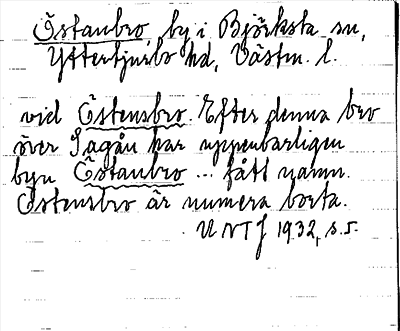 Östanbro, by i Björksta sn,
Yttertjurbo hd, Västm. l.
vid Östensbro. Efter denna bro
över Sagån har uppenbarligen
byn Östanbro ... fått namn.
Östensbro är numera borta.
UNTf 1932, s. 5.